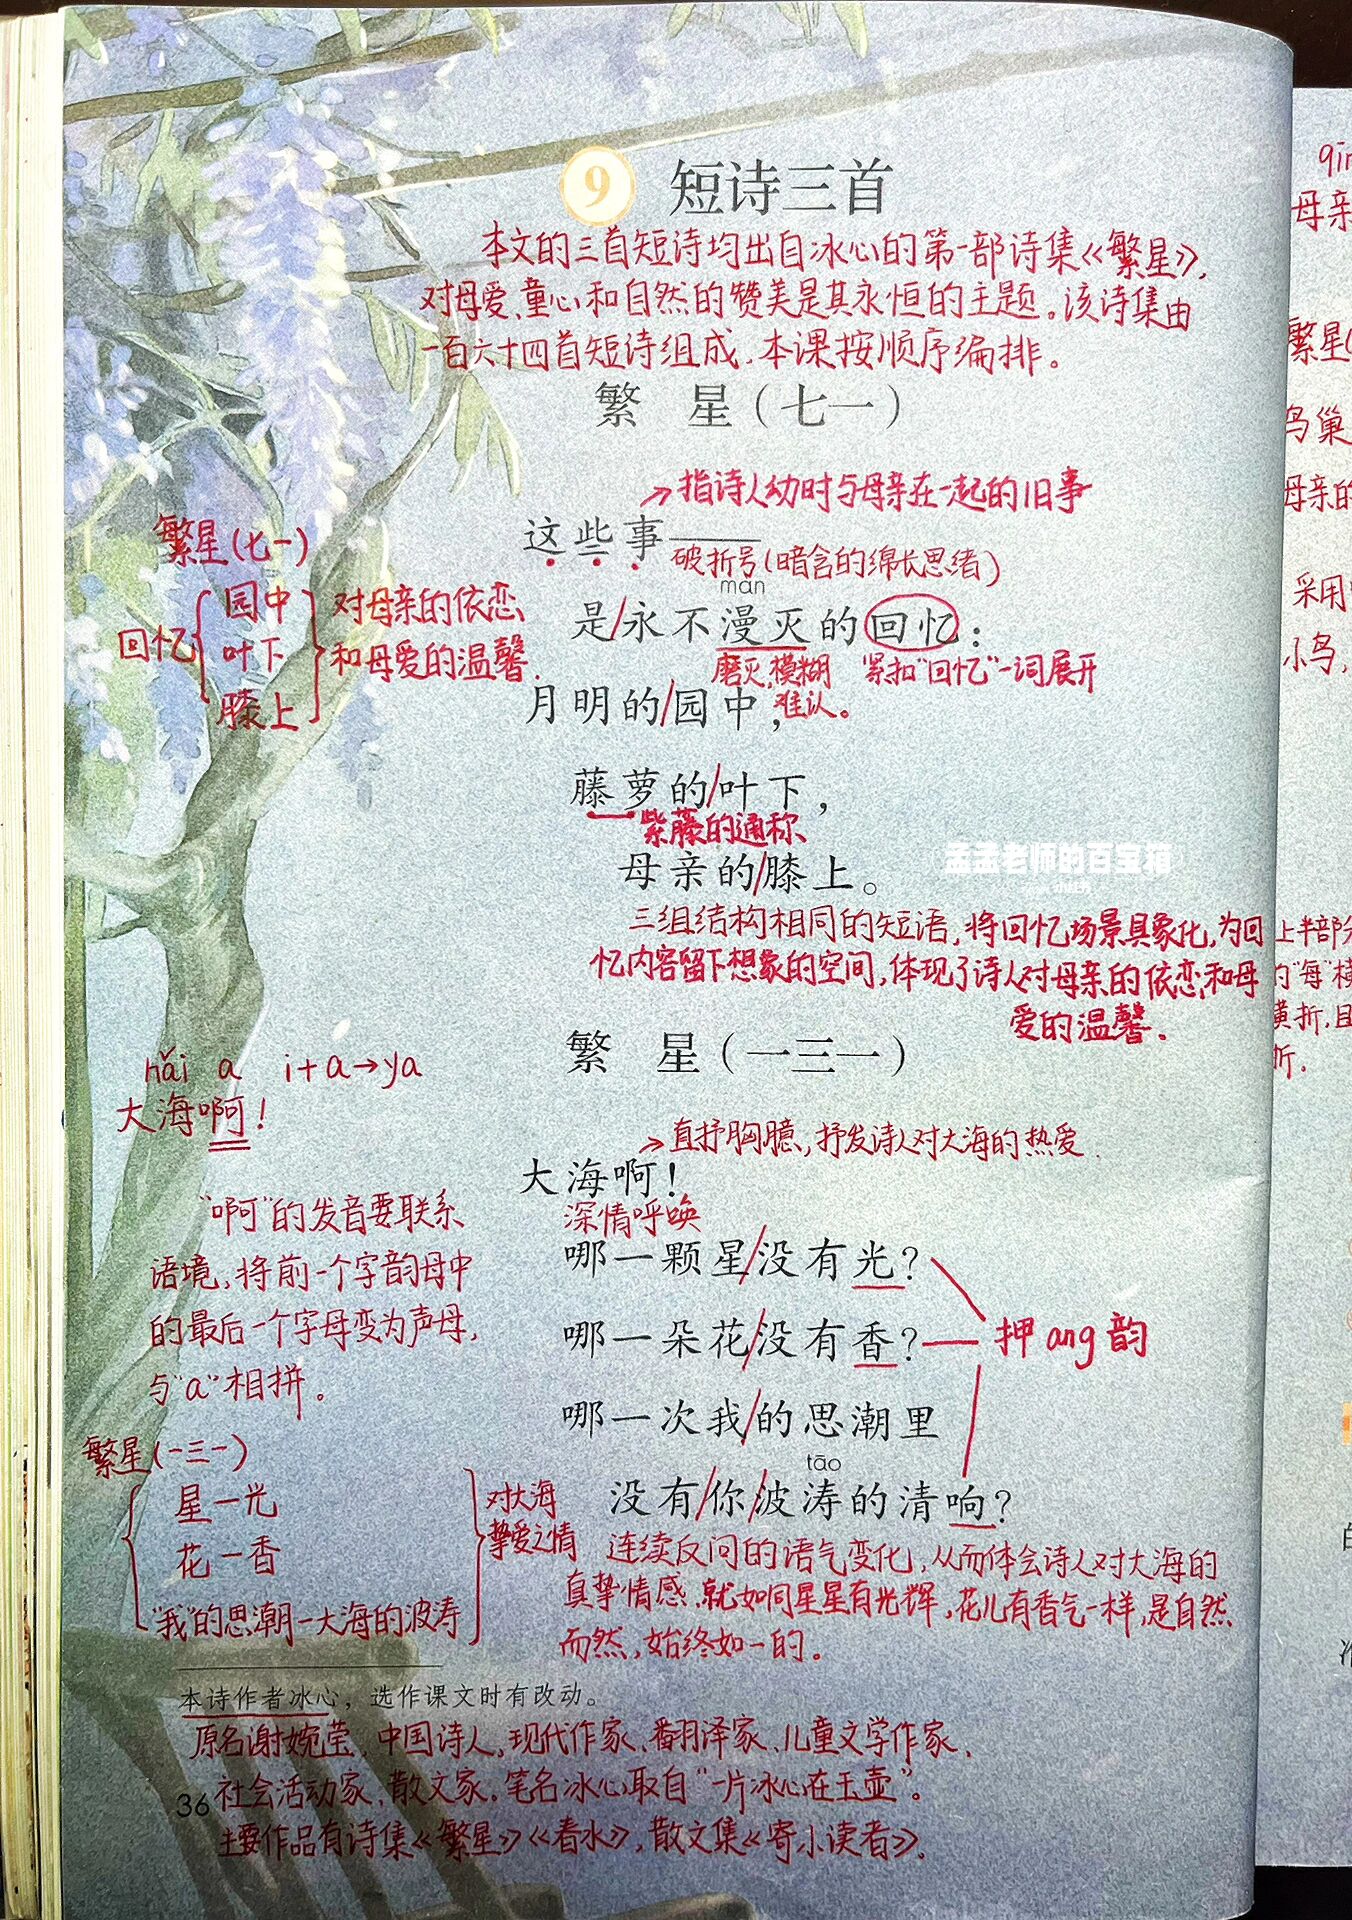 9 短诗三首
本文的三首短诗均出自冰心的第一部诗集《繁星》,
对母爱、童心和自然的赞美是其永恒的主题。该诗集由
一百六十四首短诗组成,本课按顺序编排。
繁 星（七一）
→指诗人幼时与母亲在一起的旧事
这些事——
破折号(暗含的绵长思绪)
màn
是/永不漫灭的回忆：
磨灭,模糊
难认。
紧扣"回忆"一词展开
月明的/园中，
藤萝的/叶下，
紫藤的通称
母亲的/膝上。
三组结构相同的短语,将回忆场景具象化,为回
忆内容留下想象的空间,体现了诗人对母亲的依恋和母
爱的温馨。
繁星(七一)
回忆
园中
叶下
膝上
对母亲的依恋
和母爱的温馨.
孟孟老师的百宝箱
繁 星（一三一）
→直抒胸臆,抒发诗人对大海的热爱.
大海啊！
深情呼唤
哪一颗星/没有光？
哪一朵花/没有香？
押ang韵
哪一次我/的思潮里
tāo
没有/你/波涛的清响？
连续反问的语气变化,从而体会诗人对大海的
真挚情感,就如同星星有光辉,花儿有香气一样,是自然
而然,始终如一的。
hǎi a i+a→ya
大海啊!
"啊"的发音要联系
语境,将前一个字韵母中
的最后一个字母变为声母,
与"a"相拼。
繁星(一三一)
星—光
花—香
"我"的思潮—大海的波涛
对大海
挚爱之情
本诗作者冰心，选作课文时有改动。
原名谢婉莹,中国诗人,现代作家、翻译家、儿童文学作家、
社会活动家、散文家。笔名冰心取自"一片冰心在玉壶"。
36
主要作品有诗集《繁星》《春水》,散文集《寄小读者》。
母亲
繁星(
鸟巢
母亲的
采用
小鸟,
上半部分
的"每"横
横折,且
折.